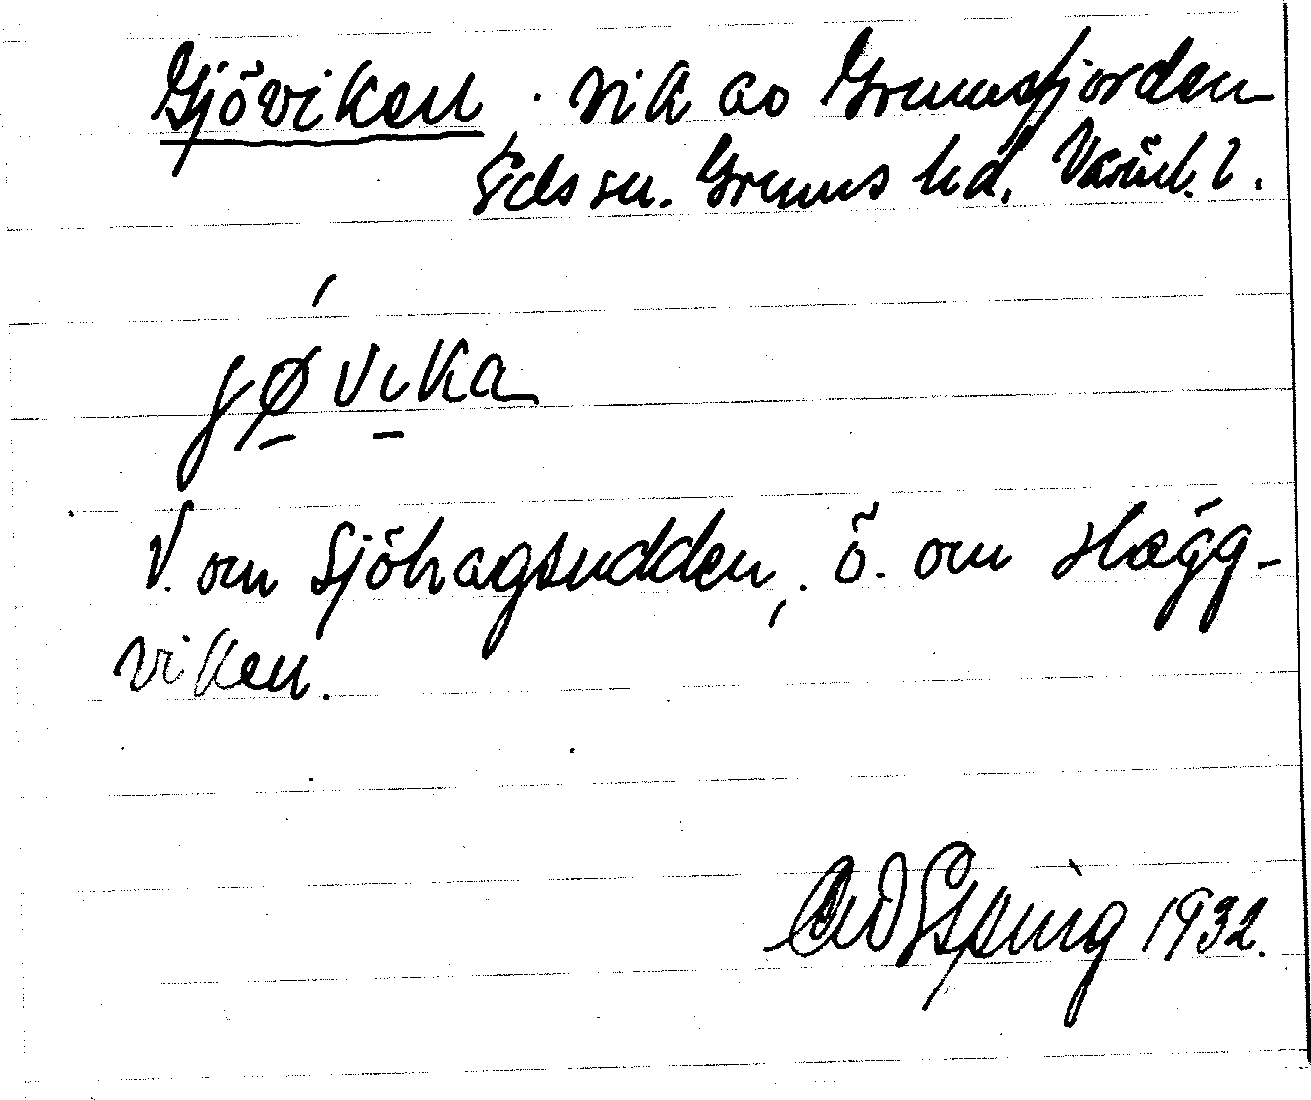 Gjöviken. vik av Grumsfjorden
Eds sn. Grums hd. Värml. l.
jøvika
V. om Sjöhagsudden, ö. om Hägg-
viken.
Esping 1932.